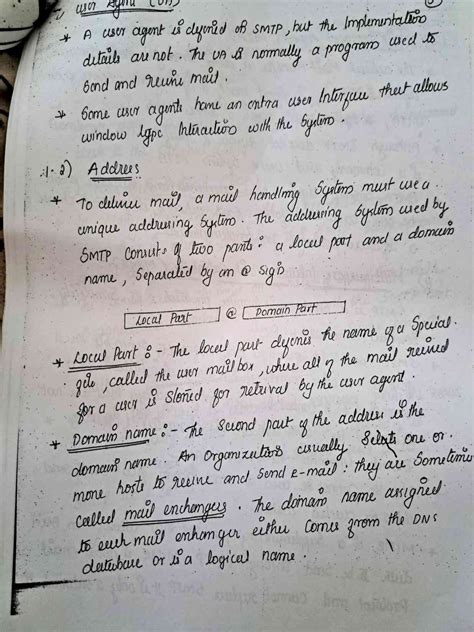 User Agent (UA)
* A user agent is defined in SMTP, but the Implementation
details are not. The UA is normally a program used to
Send and receive mail.
* Some user agents have an extra user Interface that allows
window type Interactions with the System.
1.2) Address
* To deliver mail, a mail handling System must use a
unique addressing System. The addressing System used by
SMTP Consists of two parts: a local part and a domain
name, Separated by an @ Sign
Local Part @ Domain Part
* Local Part :- The local part defines the name of a Special
file, called the user mailbox, where all of the mail received
for a user is Stored for retrieval by the user agent.
* Domain name :- The Second part of the address is the
domain name. An Organization usually Selects one or
more hosts to receive and Send e-mail: they are Sometime
Called mail exchangers. The domain name assigned
to each mail exchanger either Comes from the DNS
database or is a logical name.